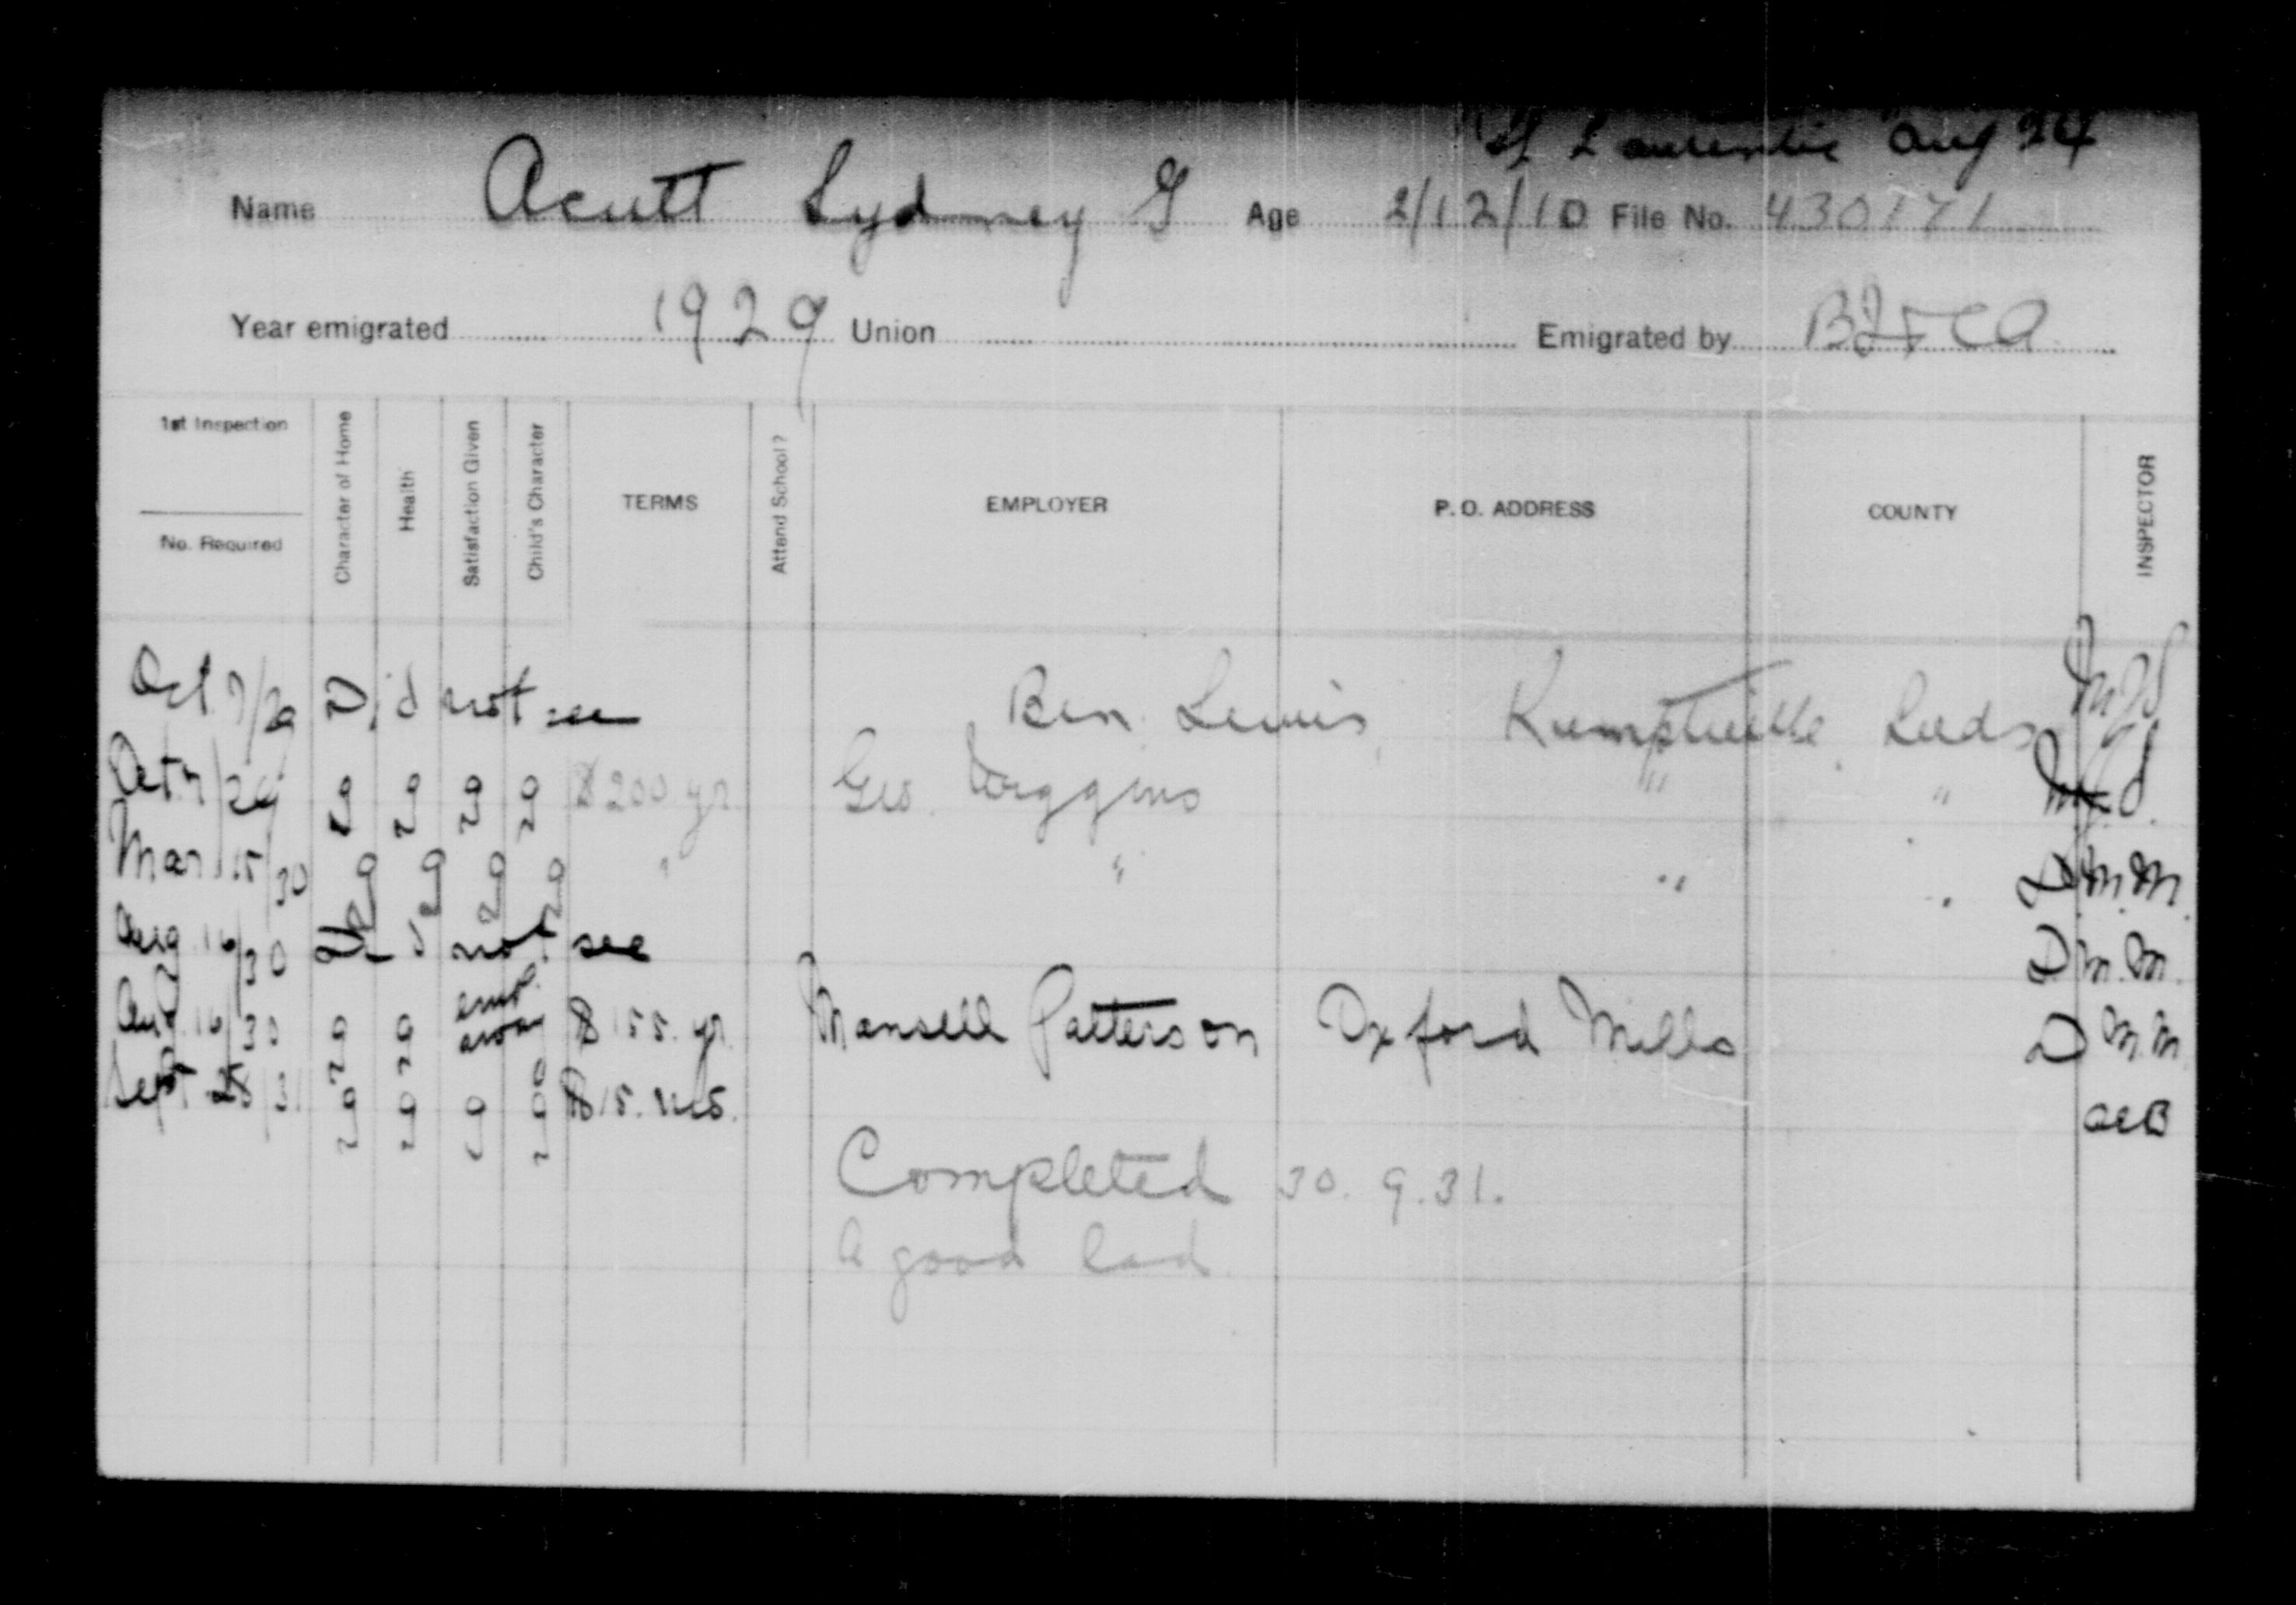 Laurentic Aug 24
Name Acutt Sydney G Age 2/12/10 File No. 430171
Year emigrated 1929 Union Emigrated by
1st Inspection
No. Required
Character of Home
Health
Satisfaction Given
Child's Character
TERMS
Attend School?
EMPLOYER
P. O. ADDRESS
COUNTY
INSPECTOR
Oct 7/29 Did not see Ben Lewis Kemptville Leeds
Oct 7/29 g g g g $200 yr. Geo. Wiggins " "
Mar 15/30 g g g g " " " " D.M.M.
Aug 16/30 Did not see D.M.M.
Aug 16/30 g g away $155. yr. Mansell Patterson Oxford Mills D.M.M.
Sept 31 g g g $15. mo. aeB
Completed 30. 9. 31.
A good lad